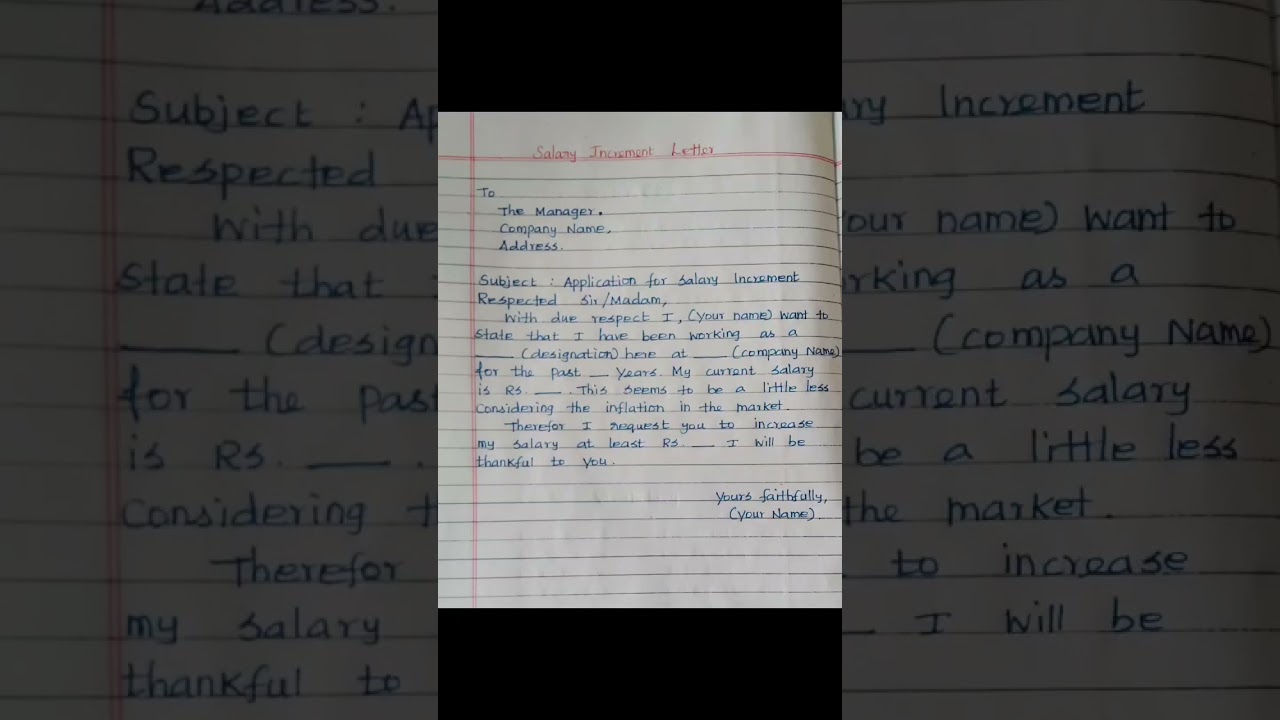 Salary Increment Letter
To
The Manager.
Company Name,
Address.
Subject : Application for Salary Increment
Respected Sir/Madam,
With due respect I, (Your name) want to
state that I have been working as a
____ (designation) here at ____ (company Name)
for the past __ Years. My current salary
is Rs. ___. This seems to be a little less
Considering the inflation in the market.
Therefor I request you to increase
my salary at least Rs. ___ I will be
thankful to you.
Yours faithfully,
(Your Name)